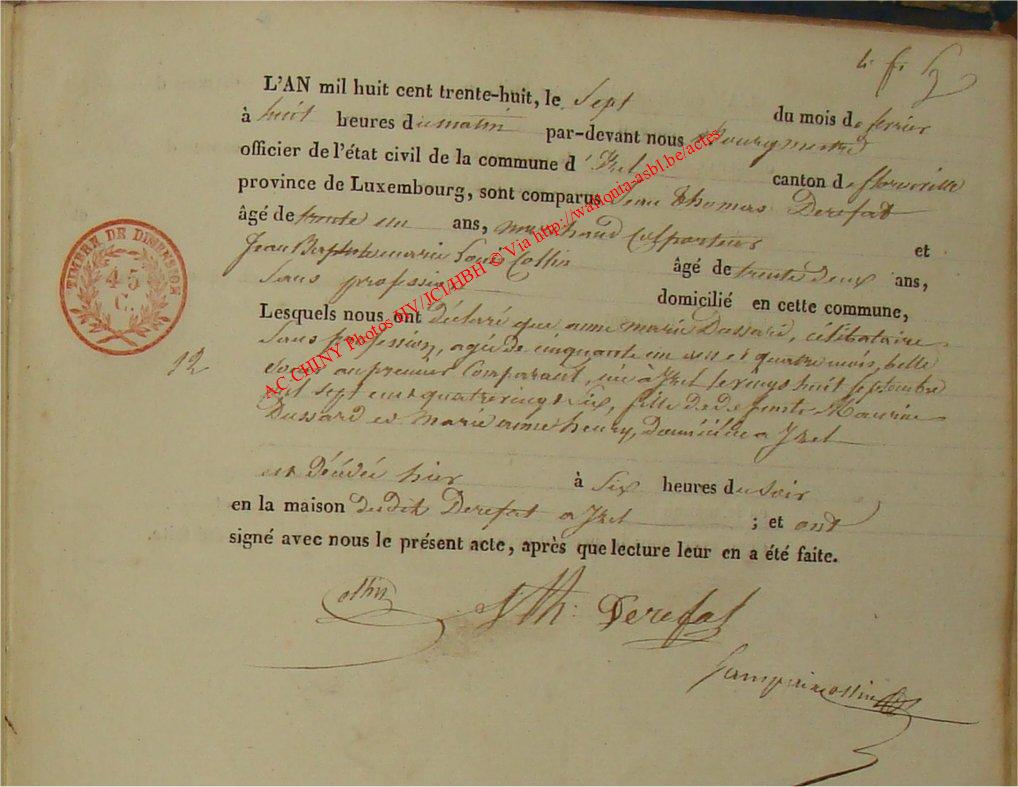 L'AN mil huit cent trente-huit, le sept du mois de fevrier
à huit heures du matin par-devant nous Bourgmestre
officier de l'état civil de la commune d'Izel canton de florenville
province de Luxembourg, sont comparus Jean Thomas Derefat
âgé de trente un ans, marchand Colporteur et
Jean Baptiste marie Louis Collin âgé de trente deux ans,
Sans profession domicilié en cette commune,
Lesquels nous ont déclaré que anne marie Dussard, célibataire
Sans profession, agée de cinquante un ans et quatre mois, belle
Soeur au premier Comparant, née à Izel le vingt huit septembre
mil sept cent quatrevingt six, fille de defunts Maurice
Dussard et marie anne henry, domiciliée a Izel
est décédée hier à six heures du soir
en la maison dudit Derefat a Izel ; et ont
signé avec nous le présent acte, après que lecture leur en a été faite.
Collin
J Th: Derefat
TIMBRE DE DIMENSION
45
C.
12
AC CHINY Photos HV/JCI/HBH © Via http://wallonia-asbl.be/actes